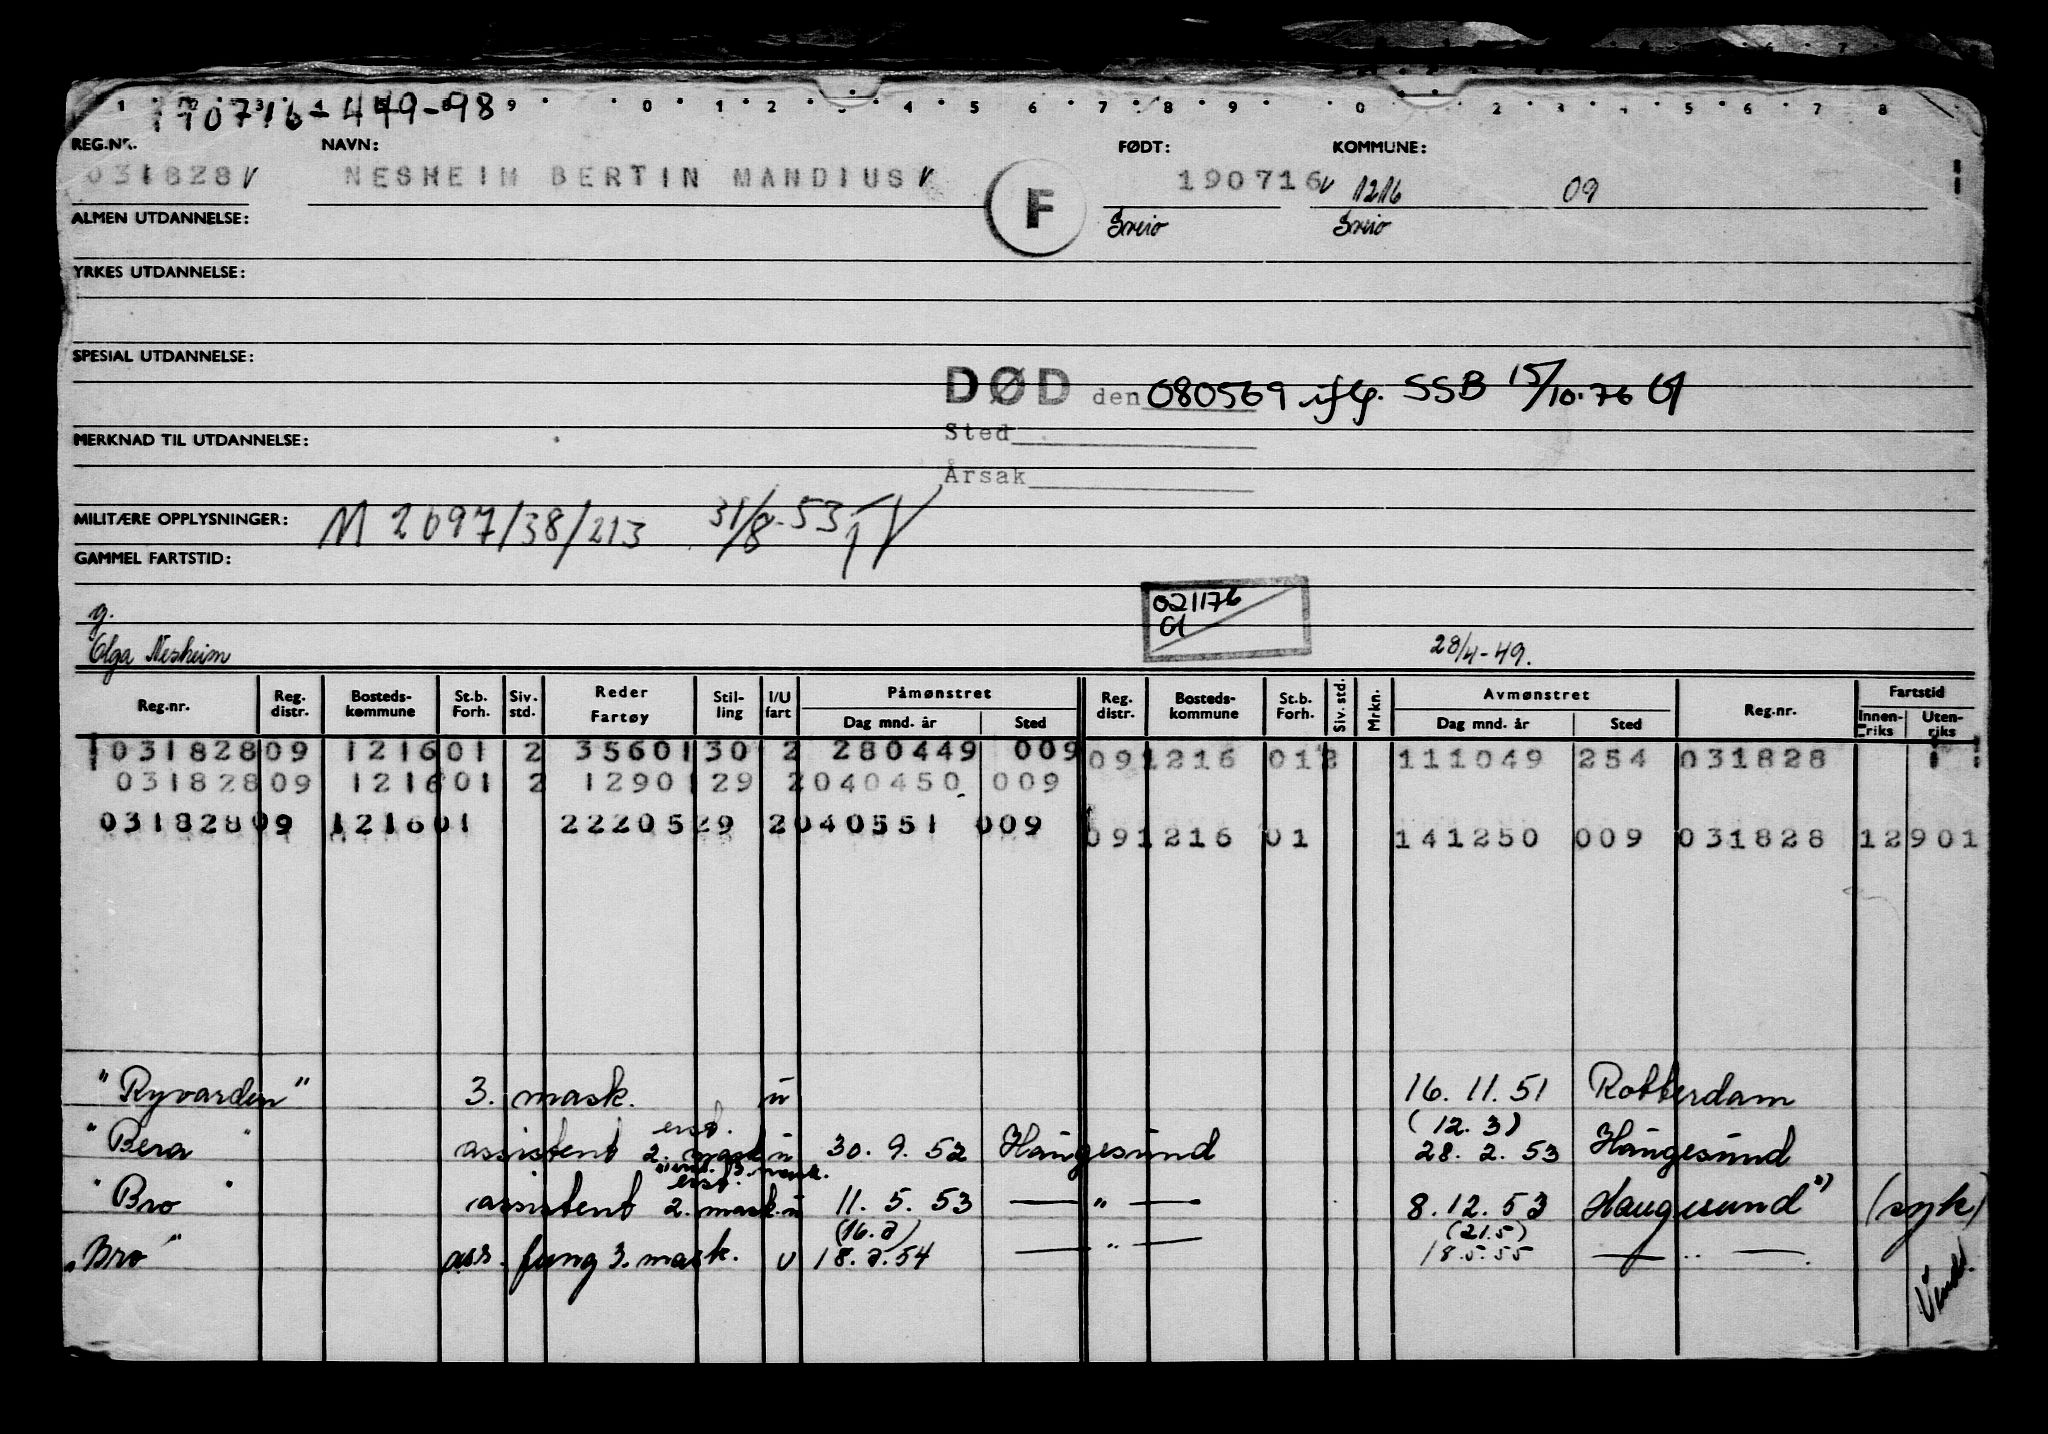 190716-449-98
REG.NR. NAVN: FØDT: KOMMUNE:
031828 V NESHEIM BERTIN MANDIUS V F 190716 V 1216 09
ALMEN UTDANNELSE: Sveio Sveio
YRKES UTDANNELSE:
SPESIAL UTDANNELSE:
DØD den 080569 iflg. SSB 15/10.76
MERKNAD TIL UTDANNELSE: Sted
Årsak
MILITÆRE OPPLYSNINGER: M 2697/38/213 31/8-53
GAMMEL FARTSTID:
g. 021176
Olga Nesheim 28/4-49.
Reg.nr. Reg. distr. Bosteds-kommune St.b. Forh. Siv. std. Reder Fartøy Stil-ling I/U fart Påmønstret Dag mnd. år Sted Reg. distr. Bosteds-kommune St.b. Forh. Siv. std. Mrkn. Avmønstret Dag mnd. år Sted Reg.nr. Fartstid Innen-riks Uten-riks
031828 09 1216 01 2 35601 30 2 280449 009 09 1216 01 2 111049 254 031828
031828 09 1216 01 2 12901 29 2 040450 009
031828 09 1216 01 22205 29 2 040551 009 09 1216 01 141250 009 031828 12901
"Ryvarden" 3. mask. u 16.11.51 Rotterdam
(12.3)
"Bera" assistent 2. mask u 30.9.52 Haugesund 28.2.53 Haugesund
"Bro" assistent 2. mask. u 11.5.53 — " — 8.12.53 Haugesund (syk)
(16.2) (21.5)
"Bro" ass. fung 3. mask. u 18.2.54 — " — 18.5.55 — " —